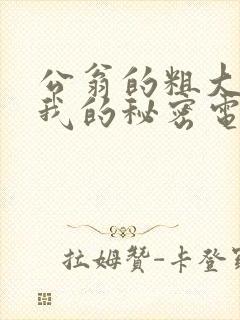 公翁的粗大
我的秘密电
拉姆赞-卡登罗